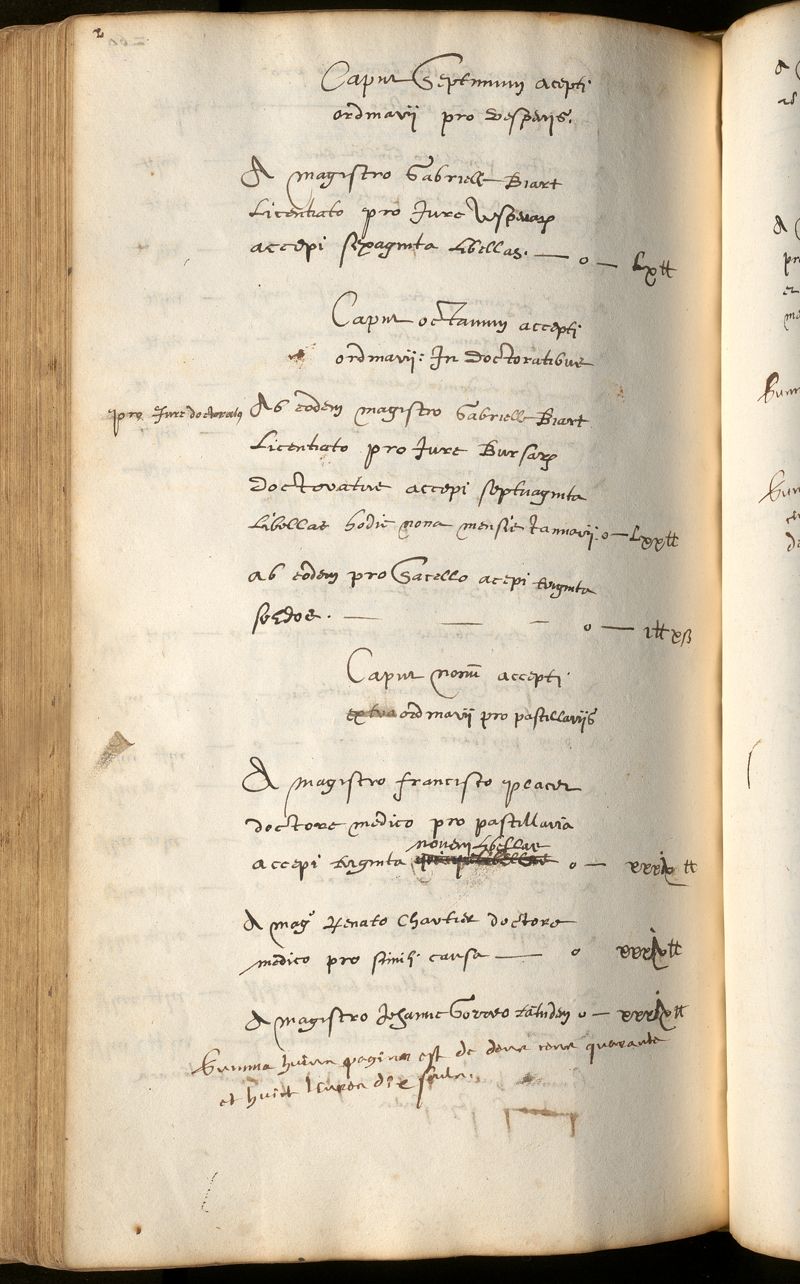 Caput Septimum acepti
ordinarij pro vesperijs.
A magistro Gabriele Biart
Licentiato pro Jure vesperiarum
accepi sexaginta libellas. — o — Lx ₶
Caput octavum accepti
ordinarij: In doctoratibus
pro Jure doctoratus
Ab eodem magistro Gabriele Biart
Licentiato pro Jure Bursarum
doctoratus accepi septuaginta
libellas hodie nona mensis Januarij: o — Lxx ₶
ab eodem pro Sacello acepi triginta
solidos. — — — o — i ₶ xß
Caput nonum accepti
extraordinarij pro pastillarijs
A magistro francisco
doctore medico pro pastillaria
novem libellas
accepi triginta o — xxxix ₶
A magro Renato Chartier doctore
medico pro simili causa — o xxxix ₶
A magistro Johanne Gorreo tantundem o — xxxix ₶
Summa huius pagina est de deux cens quarante
et huict livres dix soulz.